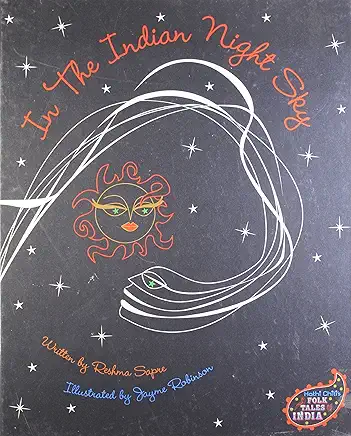 In The Indian Night Sky
Written by Reshma Sapre
Illustrated by Jayme Robinson
Hathi Chiti's
FOLK
TALES
INDIA